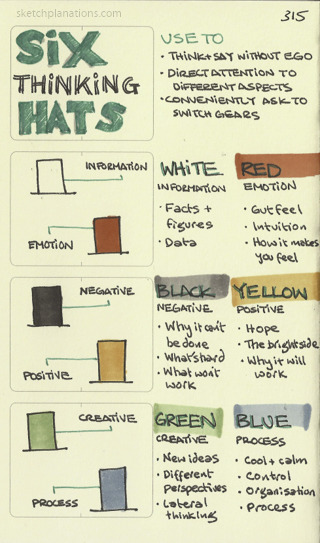 sketchplanations.com
315
SIX
THINKING
HATS
USE TO
• THINK + SAY WITHOUT EGO
• DIRECT ATTENTION TO
DIFFERENT ASPECTS
• CONVENIENTLY ASK TO
SWITCH GEARS
INFORMATION
EMOTION
WHITE
INFORMATION
• Facts +
figures
• Data
RED
EMOTION
• Gut feel
• Intuition
• How it makes
you feel
NEGATIVE
POSITIVE
BLACK
NEGATIVE
• Why it can't
be done
• What's hard
• What won't
work
YELLOW
POSITIVE
• Hope
• The bright side
• Why it will
work
CREATIVE
PROCESS
GREEN
CREATIVE
• New ideas
• Different
perspectives
• Lateral
thinking
BLUE
PROCESS
• Cool + calm
• Control
• Organisation
• Process